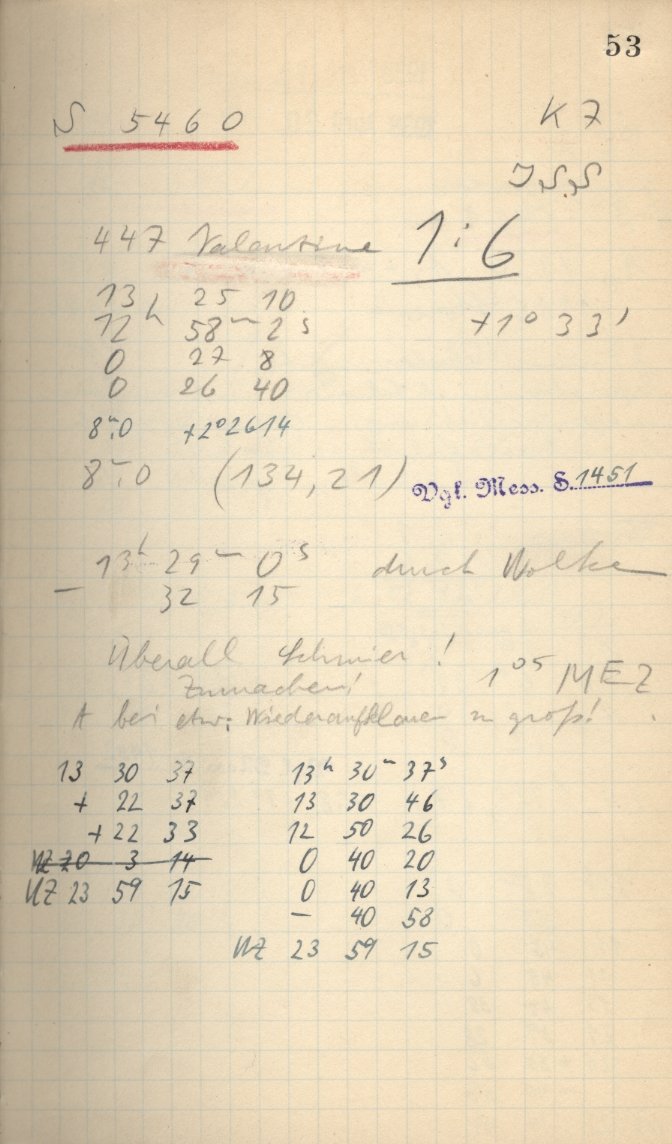 53
S 5460
K7
J.S.S
447 Valentine 1:6
13 25 10
12h 58m 2s +1° 33'
0 27 8
0 26 40
8m,0 +2°26 14
8m,0 (134,21) Vgl. Mess. S. 1451
13h 29m 0s durch Wolke
– 32 15
Überall Schmier!
Zumachen! 1 05 MEZ
A bei etw: Wiederaufklaren zu groß!
13 30 37
+ 22 37
+ 22 33
WZ 20 3 14
WZ 23 59 15
13h 30m 37s
13 30 46
12 50 26
0 40 20
0 40 13
– 40 58
WZ 23 59 15